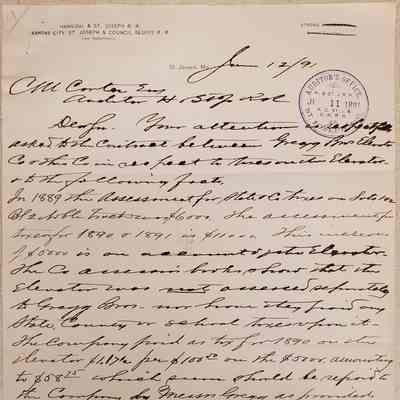 HANNIBAL & ST. JOSEPH R. R.
KANSAS CITY, ST. JOSEPH & COUNCIL BLUFFS R. R.
St. Joseph, Mo.
Jan 12/91
C M Carter Esq
Auditor H & St Jo Rd
AUDITOR'S OFFICE
11 1891
Dear Sir. Your attention is respectfully
asked to the contract between Gregg Bros Elevator
Co & the Co in respect to taxes on the Elevator
& to the following facts.
In 1889 the Assessment for State & Co taxes on Lots
Blk 2 was $6000. The assessment for
taxes for 1890 & 1891 is $11000. This increase
of $5000 is on account of the Elevator.
The Co assessors books show that the
Elevator was not assessed separately
to Gregg Bros. nor have they paid any
State, County or School taxes upon it.
The Company paid as tax for 1890 on the
elevator per $100 on the $5000. amounting
to $58 which sum should be repaid to
the Company by Messrs Gregg as provided